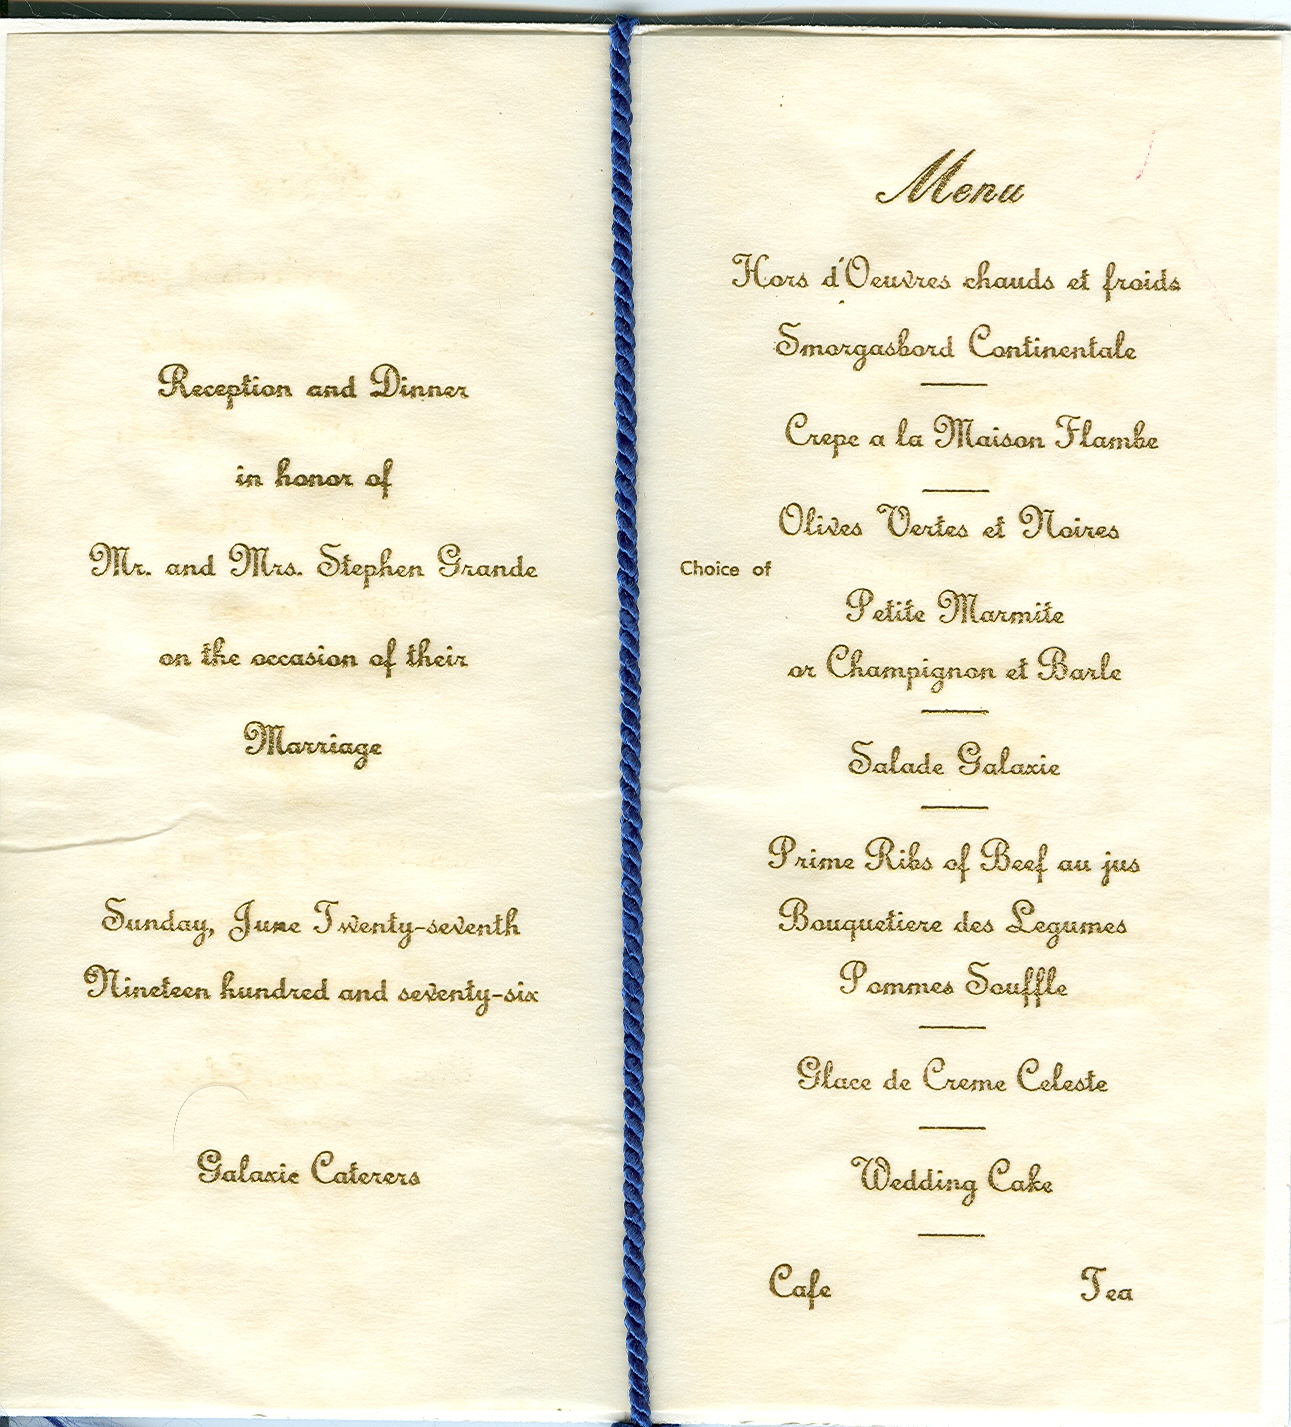 Reception and Dinner
in honor of
Mr. and Mrs. Stephen Grande
on the occasion of their
Marriage
Sunday, June Twenty-seventh
Nineteen hundred and seventy-six
Galaxie Caterers
Menu
Hors d'Oeuvres chauds et froids
Smorgasbord Continentale
Crepe a la Maison Flambe
Olives Vertes et Noires
Choice of
Petite Marmite
or Champignon et Barle
Salade Galaxie
Prime Ribs of Beef au jus
Bouquetiere des Legumes
Pommes Souffle
Glace de Creme Celeste
Wedding Cake
Cafe Tea